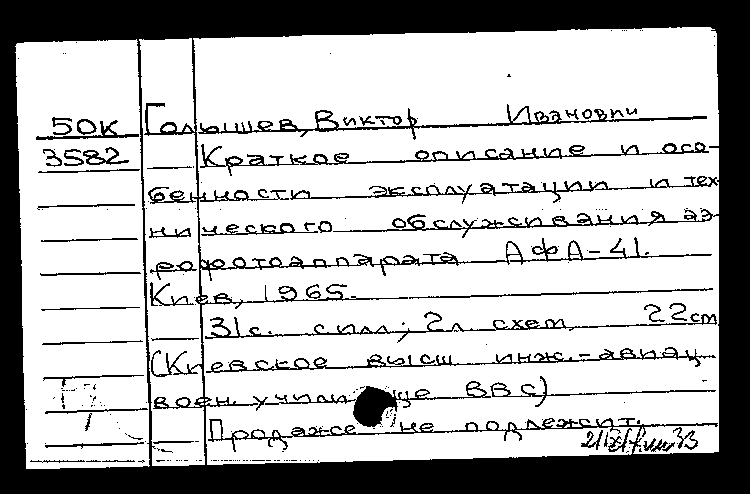 50К Голышев, Виктор Иванович
3582 Краткое описание и осо-
бенности эксплуатации и тех-
нического обслуживания аэ-
рофотоаппарата АФА-41.
Киев, 1965.
31с. с илл; 2л. схем 22см
(Киевское высш инж.-авиац.
воен. училище ВВС)
Продаже не подлежит.